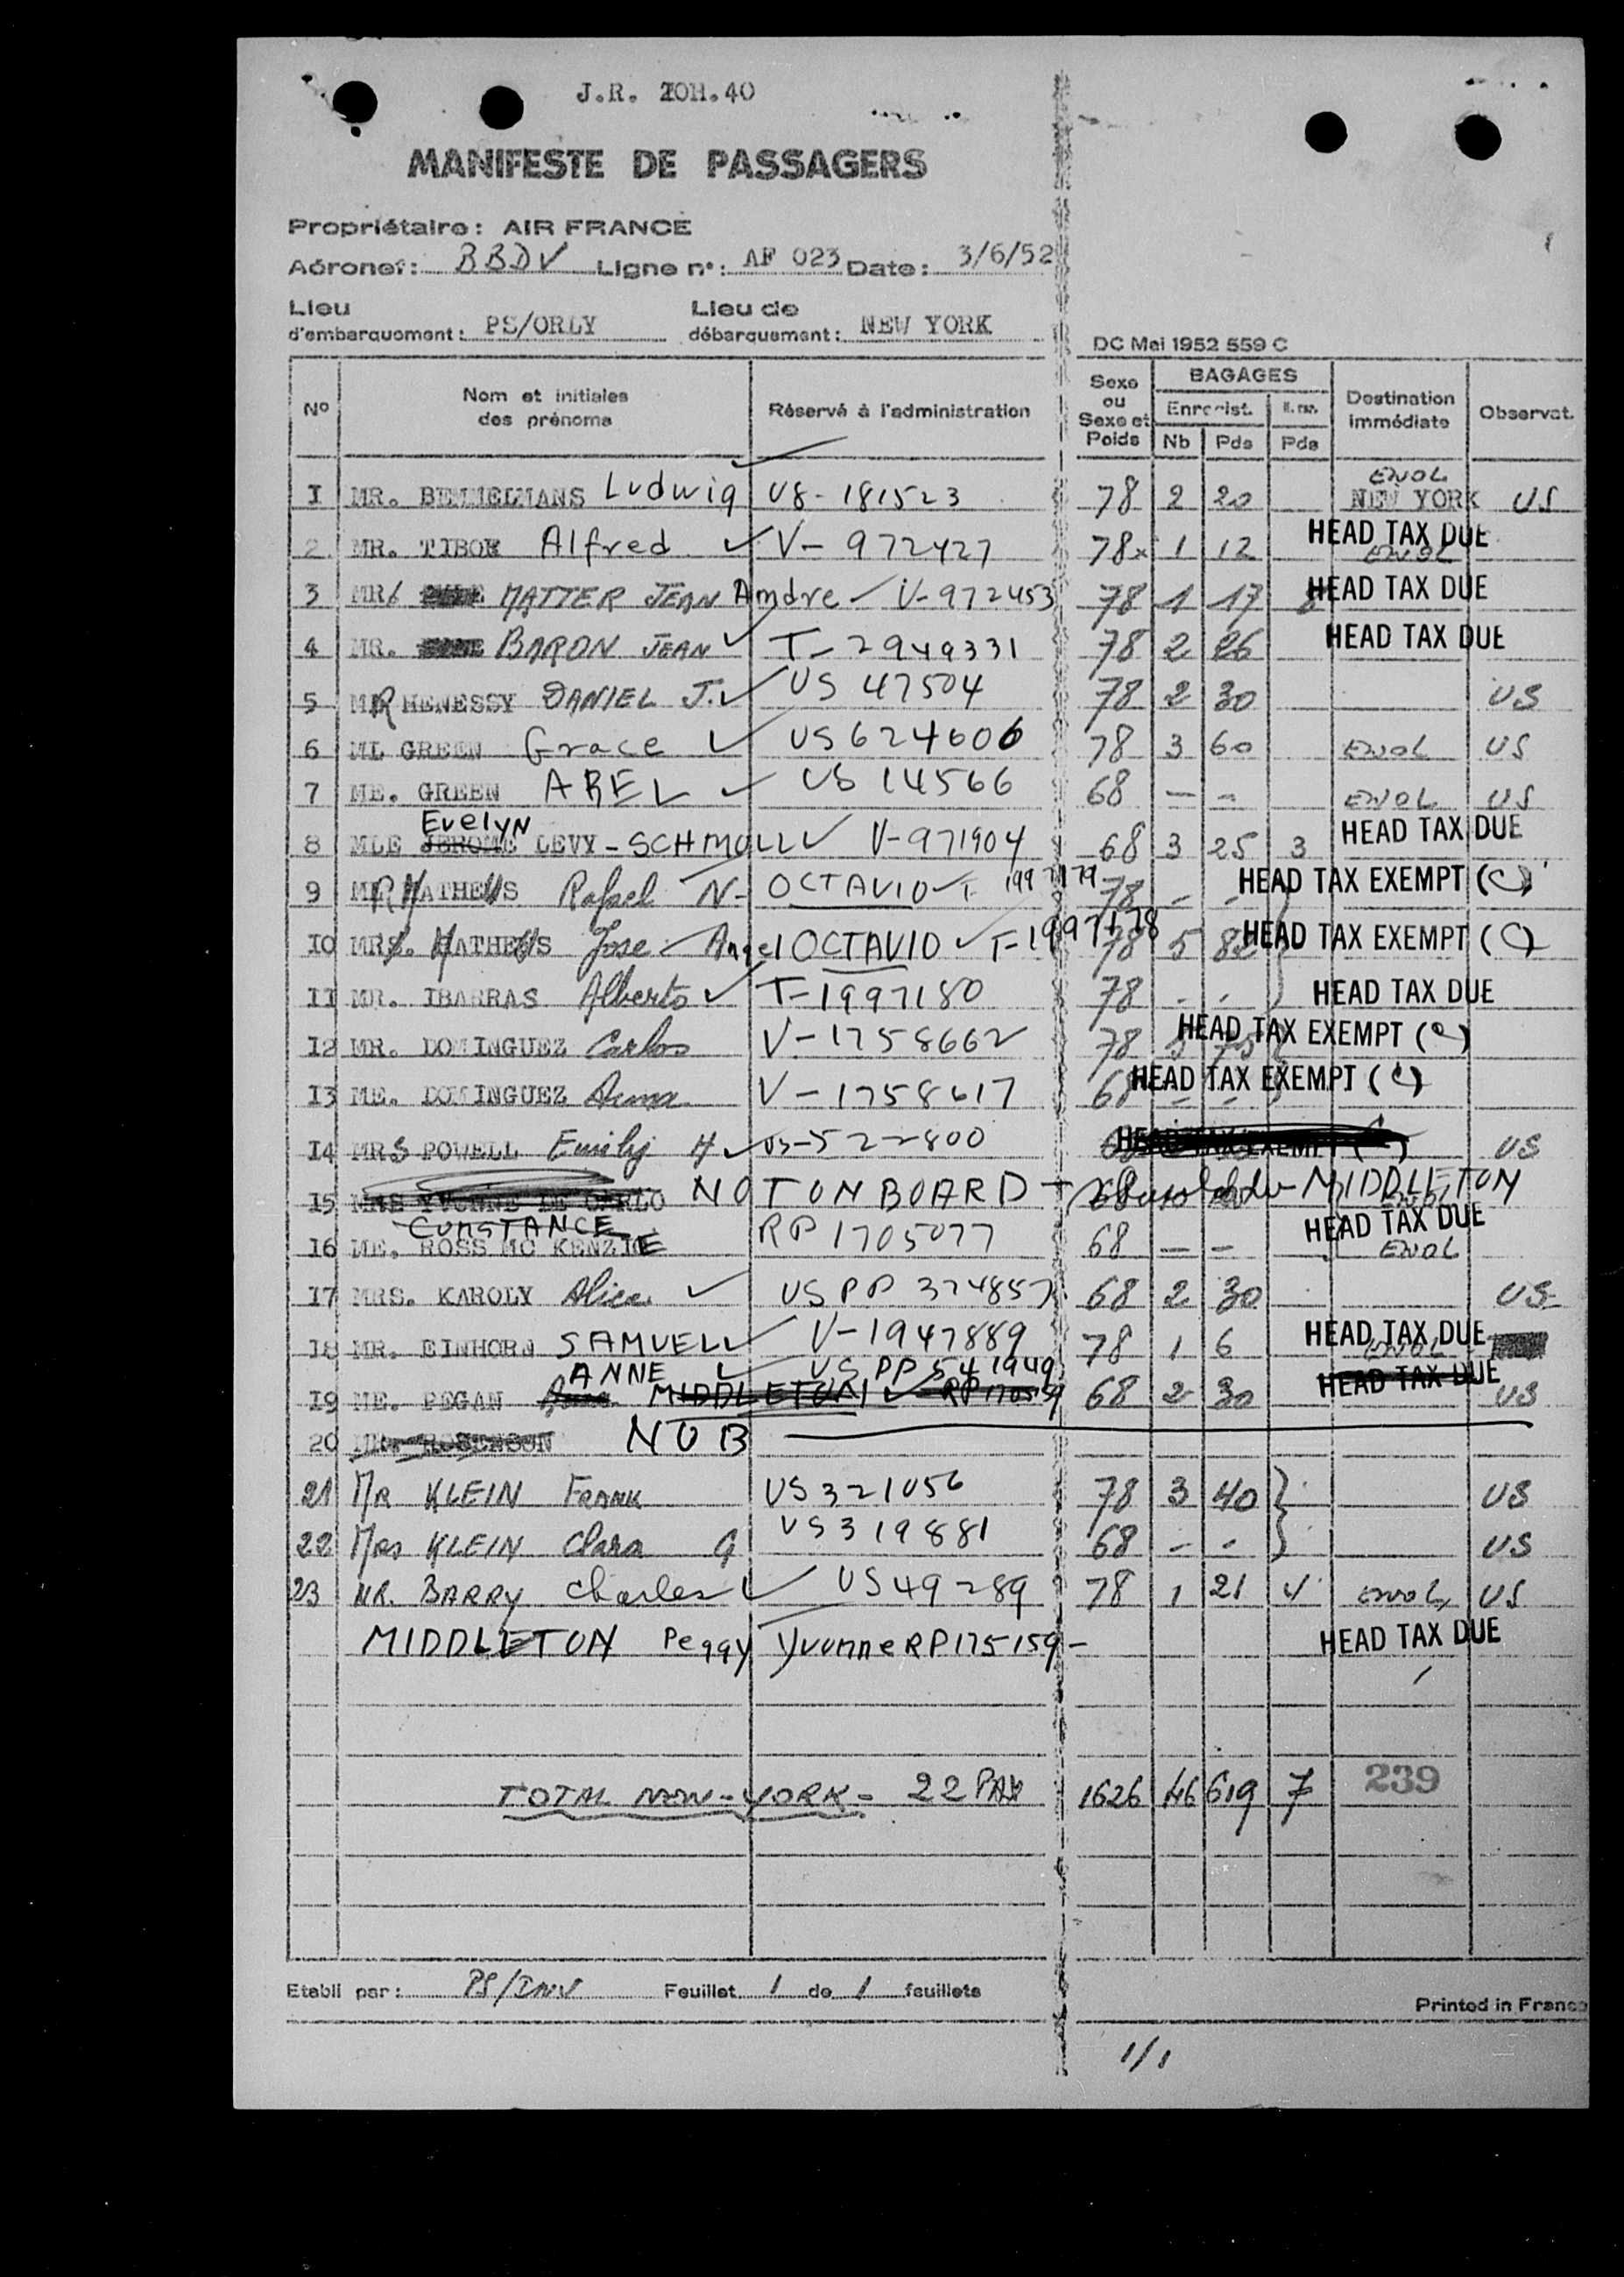 J.R. 20H.40
MANIFESTE DE PASSAGERS
Propriétaire : AIR FRANCE
Aéronef : BBDV Ligne n° : AF 023 Date : 3/6/52
Lieu d'embarquement : PS/ORLY Lieu de débarquement : NEW YORK
DC Mai 1952 559 C
N° Nom et initiales des prénoms Réservé à l'administration Sexe ou Sexe et Poids BAGAGES Enregist. Nb Pds Pds Destination immédiate Observat.
1 MR. BEMMELMANS Ludwig US-181523 78 2 20 NEW YORK US
2 MR. TIBOR Alfred V-972427 78 1 12 HEAD TAX DUE
3 MR MATTER JEAN Andre V-972453 78 1 17 HEAD TAX DUE
4 MR. BARON JEAN T-2949331 78 2 26 HEAD TAX DUE
5 MR HENESSY DANIEL J. US 47504 78 2 30 US
6 ML GREEN Grace US 624606 78 3 60 US
7 ME. GREEN ABEL US 14566 68 - - US
8 MLE JEROME Evelyn LEVY-SCHMOLL V-971904 68 3 25 3 HEAD TAX DUE
9 MR MATHEUS Rafael N- OCTAVIO T 1997179 78 - - HEAD TAX EXEMPT (C)
10 MR. MATHEUS Jose Angel OCTAVIO T-1997178 78 5 82 HEAD TAX EXEMPT (C)
11 MR. IBARRAS Alberto T-1997180 78 - - HEAD TAX DUE
12 MR. DOMINGUEZ Carlos V-1758662 78 HEAD TAX EXEMPT (C)
13 ME. DOMINGUEZ V-1758617 68 - - HEAD TAX EXEMPT (C)
14 MRS POWELL Emily H US-522800 HEAD TAX EXEMPT US
15 MRS YVONNE DE CARLO NOT ON BOARD MIDDLETON
16 ME. ROSS MC KENZIE CONSTANCE RP 1705077 68 - - HEAD TAX DUE
17 MRS. KAROLY Alice US PP 374857 68 2 30 US
18 MR. EINHORN SAMUEL V-1947889 78 1 6 HEAD TAX DUE
19 ME. PEGAN ANNE US PP 541949 MIDDLETON 68 2 30 HEAD TAX DUE US
20 NOB
21 MR KLEIN Frank US 321056 78 3 40 US
22 Mrs KLEIN Clara G US 319881 68 - - US
23 MR. BARRY Charles US 49289 78 1 21 4 US
MIDDLETON Peggy Yvonne RP 175159- HEAD TAX DUE
TOTAL NEW-YORK- 22 PAX 1626 46 619 7 239
Etabli par : Feuillet 1 de 1 feuillets
Printed in France
1/1